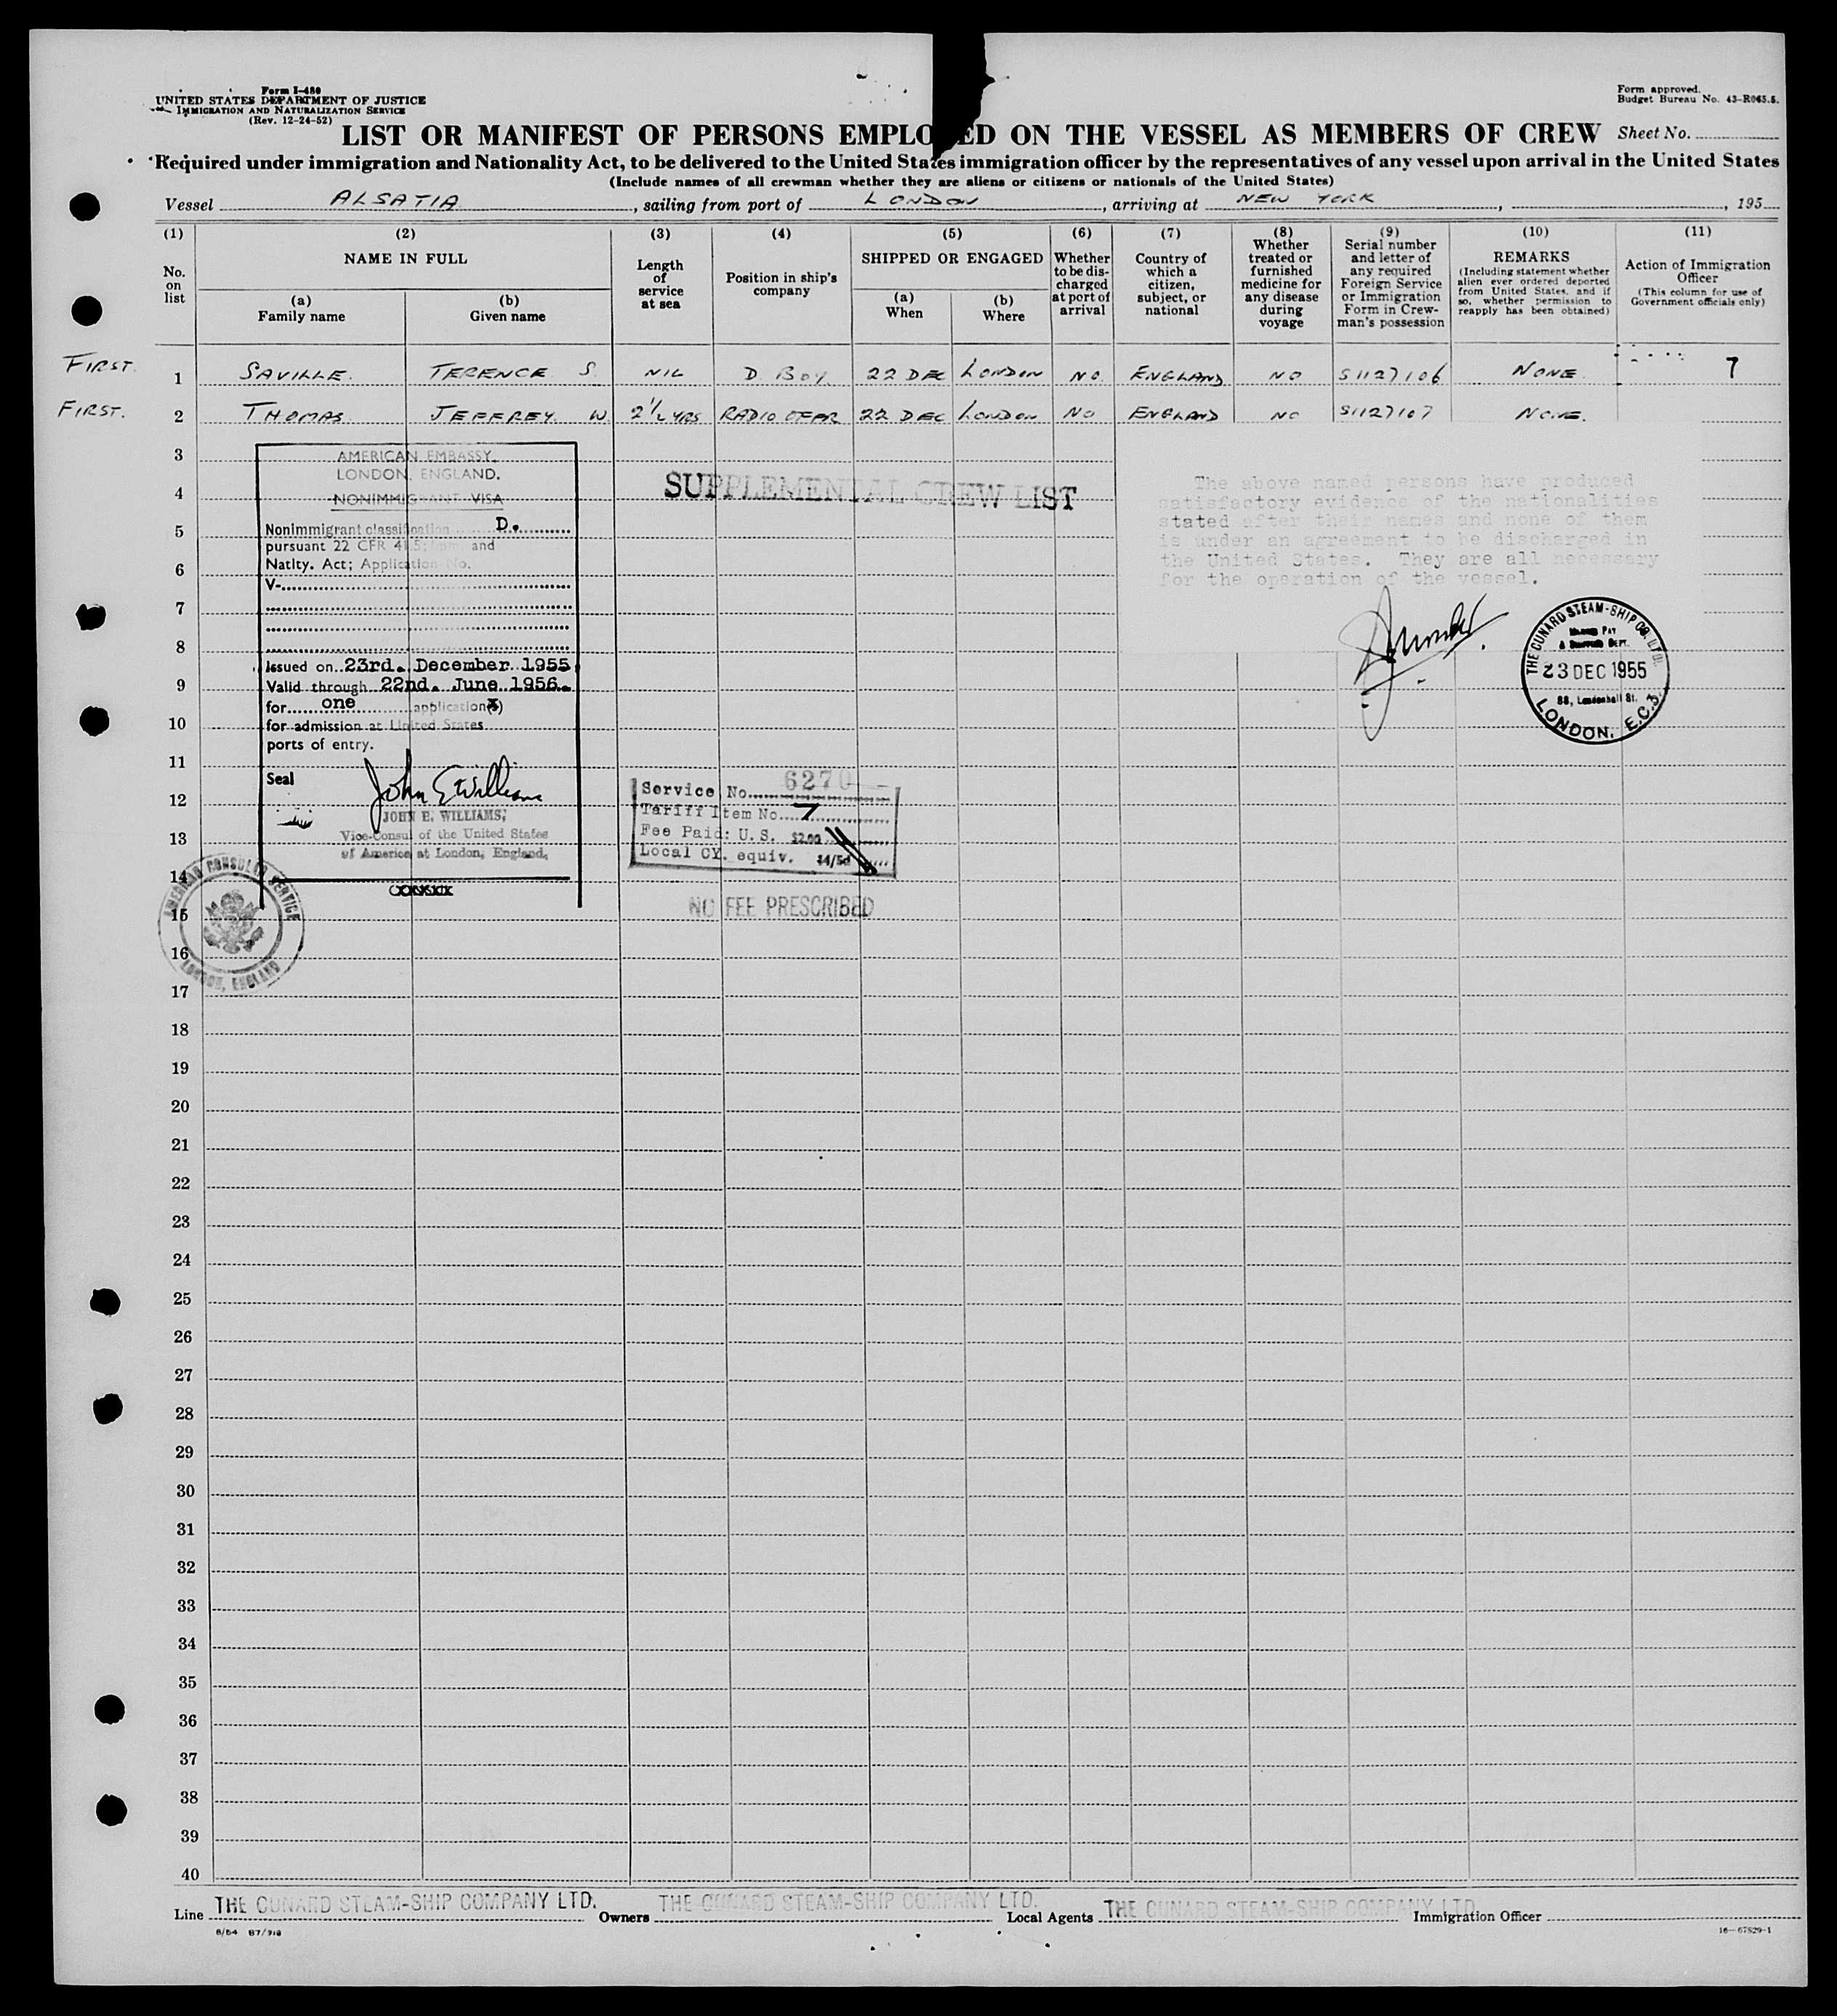 Form I-480
UNITED STATES DEPARTMENT OF JUSTICE
IMMIGRATION AND NATURALIZATION SERVICE
(Rev. 12-24-52)
Form approved.
Budget Bureau No. 43-R065.5.
LIST OR MANIFEST OF PERSONS EMPLO ED ON THE VESSEL AS MEMBERS OF CREW Sheet No.
Required under immigration and Nationality Act, to be delivered to the United States immigration officer by the representatives of any vessel upon arrival in the United States
(Include names of all crewman whether they are aliens or citizens or nationals of the United States)
Vessel ALSATIA, sailing from port of LONDON, arriving at NEW YORK, , 195
(1) (2) (3) (4) (5) (6) (7) (8) (9) (10) (11)
No. on list
NAME IN FULL
(a) Family name
(b) Given name
Length of service at sea
Position in ship's company
SHIPPED OR ENGAGED
(a) When
(b) Where
Whether to be discharged at port of arrival
Country of which a citizen, subject, or national
Whether treated or furnished medicine for any disease during voyage
Serial number and letter of any required Foreign Service or Immigration Form in Crewman's possession
REMARKS
(Including statement whether alien ever ordered deported from United States, and if so, whether permission to reapply has been obtained)
Action of Immigration Officer
(This column for use of Government officials only)
FIRST. 1 SAVILLE. TERENCE S. NIL D. BOY. 22 DEC LONDON NO. ENGLAND NO S1127106 NONE 7
FIRST. 2 THOMAS. JEFFREY. W 2½ YRS RADIO OFFR 22 DEC LONDON NO ENGLAND NO S1127107 NONE.
3
4
5
6
7
8
9
10
11
12
13
14
15
16
17
18
19
20
21
22
23
24
25
26
27
28
29
30
31
32
33
34
35
36
37
38
39
40
AMERICAN EMBASSY,
LONDON, ENGLAND.
NONIMMIGRANT VISA
Nonimmigrant classification D.
pursuant 22 CFR 41.5; Imm. and
Natlty. Act; Application No.
V-
Issued on 23rd. December 1955
Valid through 22nd. June 1956.
for one application(s)
for admission at United States
ports of entry.
Seal
John E Williams
JOHN E. WILLIAMS,
Vice-Consul of the United States
of America at London, England.
AMERICAN CONSULAR SERVICE
LONDON, ENGLAND
SUPPLEMENTAL CREW LIST
Service No. 6270
Tariff Item No. 7
Fee Paid: U. S. $2.00
Local CY. equiv. 14/5d
NO FEE PRESCRIBED
The above named persons have produced
satisfactory evidence of the nationalities
stated after their names and none of them
is under an agreement to be discharged in
the United States. They are all necessary
for the operation of the vessel.
THE CUNARD STEAM-SHIP CO. LTD.
23 DEC 1955
88, Leadenhall St.
LONDON, E.C.3.
Line THE CUNARD STEAM-SHIP COMPANY LTD. Owners THE CUNARD STEAM-SHIP COMPANY LTD. Local Agents THE CUNARD STEAM-SHIP COMPANY LTD Immigration Officer
8/54 B7/718
16—67829-1